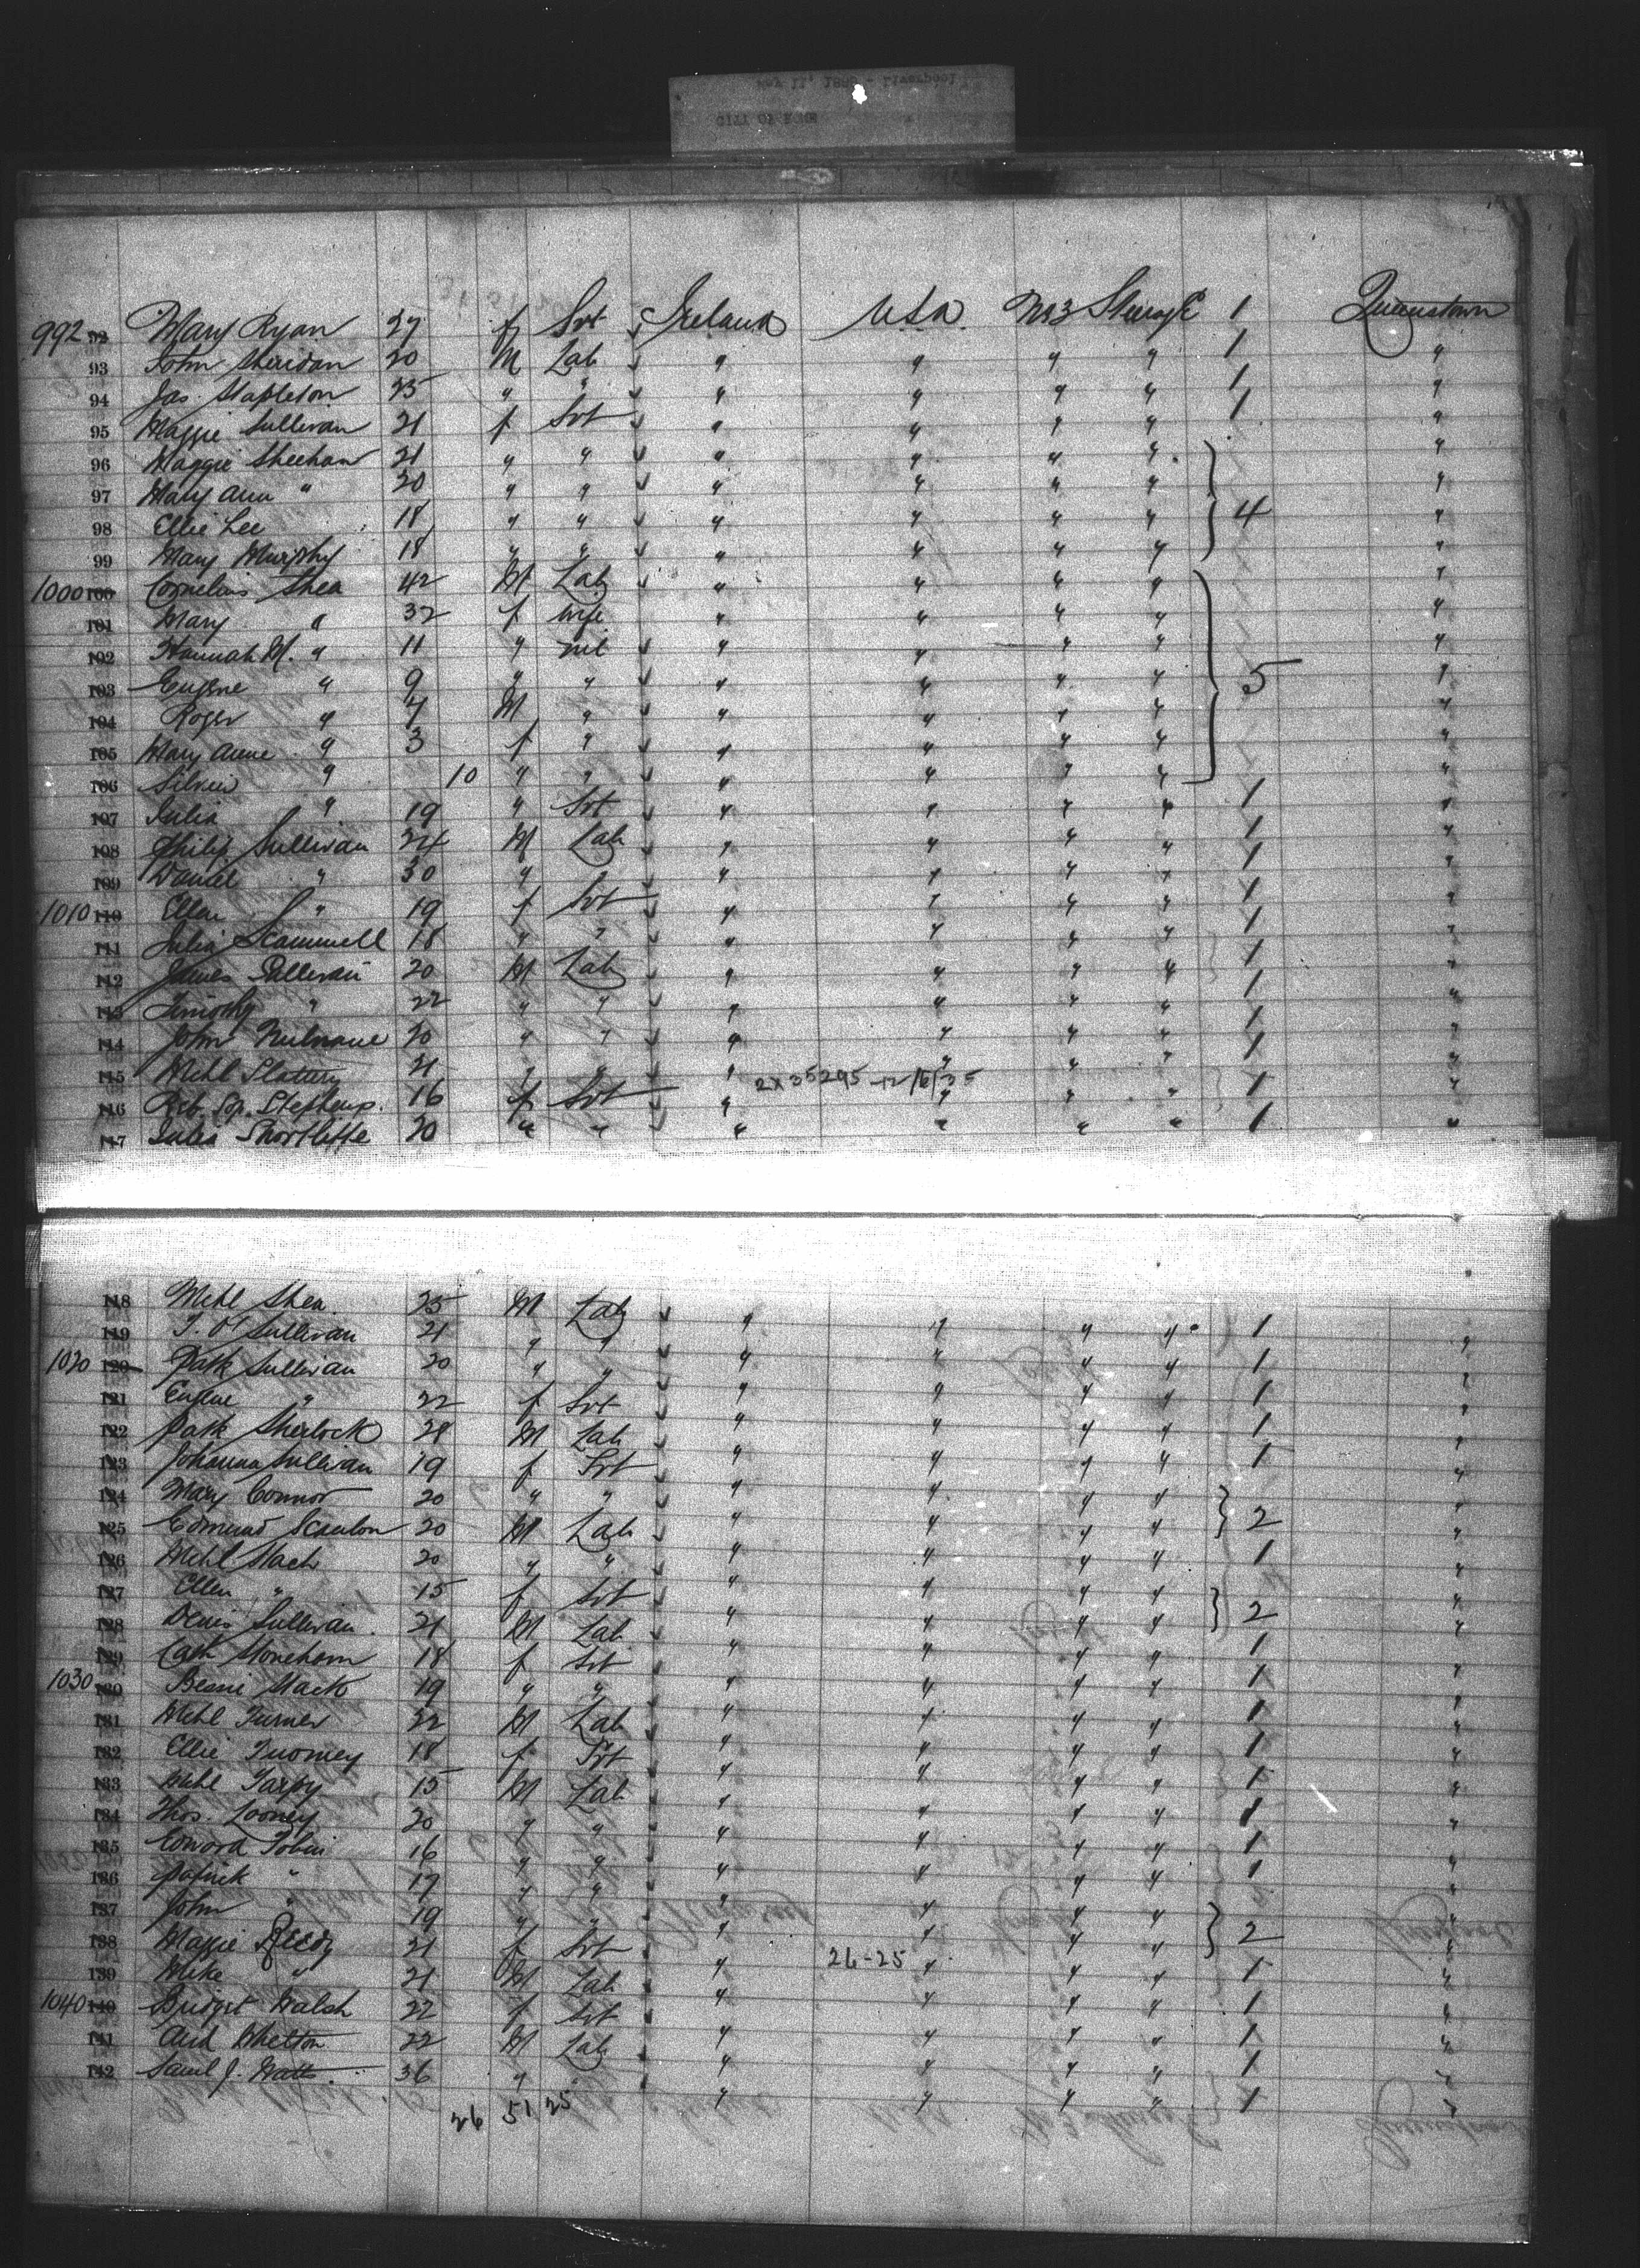 CITY OF ROME
992 92 Mary Ryan 27 f Svt Ireland USA No 3 Steerage 1 Queenstown
93 John Sheridan 20 M Lab " " " " 1 "
94 Jas. Stapleton 25 " " " " " " 1 "
95 Maggie Sullivan 21 f Svt " " " " 1 "
96 Maggie Sheehan 21 " " " " " " "
97 Mary Ann " 20 " " " " " " "
98 Ellie Lee 18 " " " " " " 4 "
99 Mary Murphy 18 " " " " " " "
1000 100 Cornelius Shea 42 M Lab " " " " "
101 Mary " 32 f wife " " " " "
102 Hannah M. " 11 " nil " " " " "
103 Eugene " 9 " " " " " " 5 "
104 Roger " 7 M " " " " " "
105 Mary Anne " 3 f " " " " " "
106 " 10 " " " " " " "
107 Julia " 19 " Svt " " " " 1 "
108 Philip Sullivan 24 M Lab " " " " 1 "
109 Daniel " 30 " " " " " 1 "
1010 110 Ellen " 19 f Svt " " " " 1 "
111 Julia Scammell 18 " " " " " " 1 "
112 James Sullivan 20 M Lab " " " " 1 "
113 Timothy " 22 " " " " " " 1 "
114 John 20 " " " " " " 1 "
115 Michl Slattery 21 " " " " " " 1 "
2X35295 - 12/6/35
116 Stephens. 16 f Svt " " " " 1 "
117 Julia Shortliffe 20 " " " " " " 1 "
118 Michl Shea. 25 M Lab " " " " 1 "
119 T. O'Sullivan 21 " " " " " " 1 "
1020 120 Patk Sullivan 20 " " " " " " 1 "
121 Eugene " 22 f Svt " " " " 1 "
122 Patk Sherlock 28 M Lab " " " " 1 "
123 Johanna Sullivan 19 f Svt " " " " "
124 Mary Connor 20 " " " " " " 2 "
125 Edmund Scanlon 20 M Lab " " " " 1 "
126 Michl Stack 20 " " " " " " "
127 Ellen " 15 f Svt " " " " 2 "
128 Denis Sullivan. 21 M Lab " " " " 1 "
129 Cath 18 f Svt " " " " 1 "
1030 130 Bessie Stack 19 " " " " " " 1 "
131 Michl Turner 22 M Lab " " " " 1 "
132 Ellie Twomey 18 f Svt " " " " 1 "
133 Michl Tarpy 15 M Lab " " " " 1 "
134 Thos. Looney 20 " " " " " " 1 "
135 Edward Tobin 16 " " " " " " 1 "
136 Patrick " 17 " " " " " " "
137 John " 19 " " " " " " 2 "
138 Maggie Reedy 21 f Svt " " " " 1 "
26-25
139 Mike " 21 M Lab " " " " 1 "
1040 140 Bridget Walsh 22 f Svt " " " " 1 "
141 Whelton 22 M Lab " " " " 1 "
142 Saml J. Watts. 36 " " " " " " 1 "
26 51 25